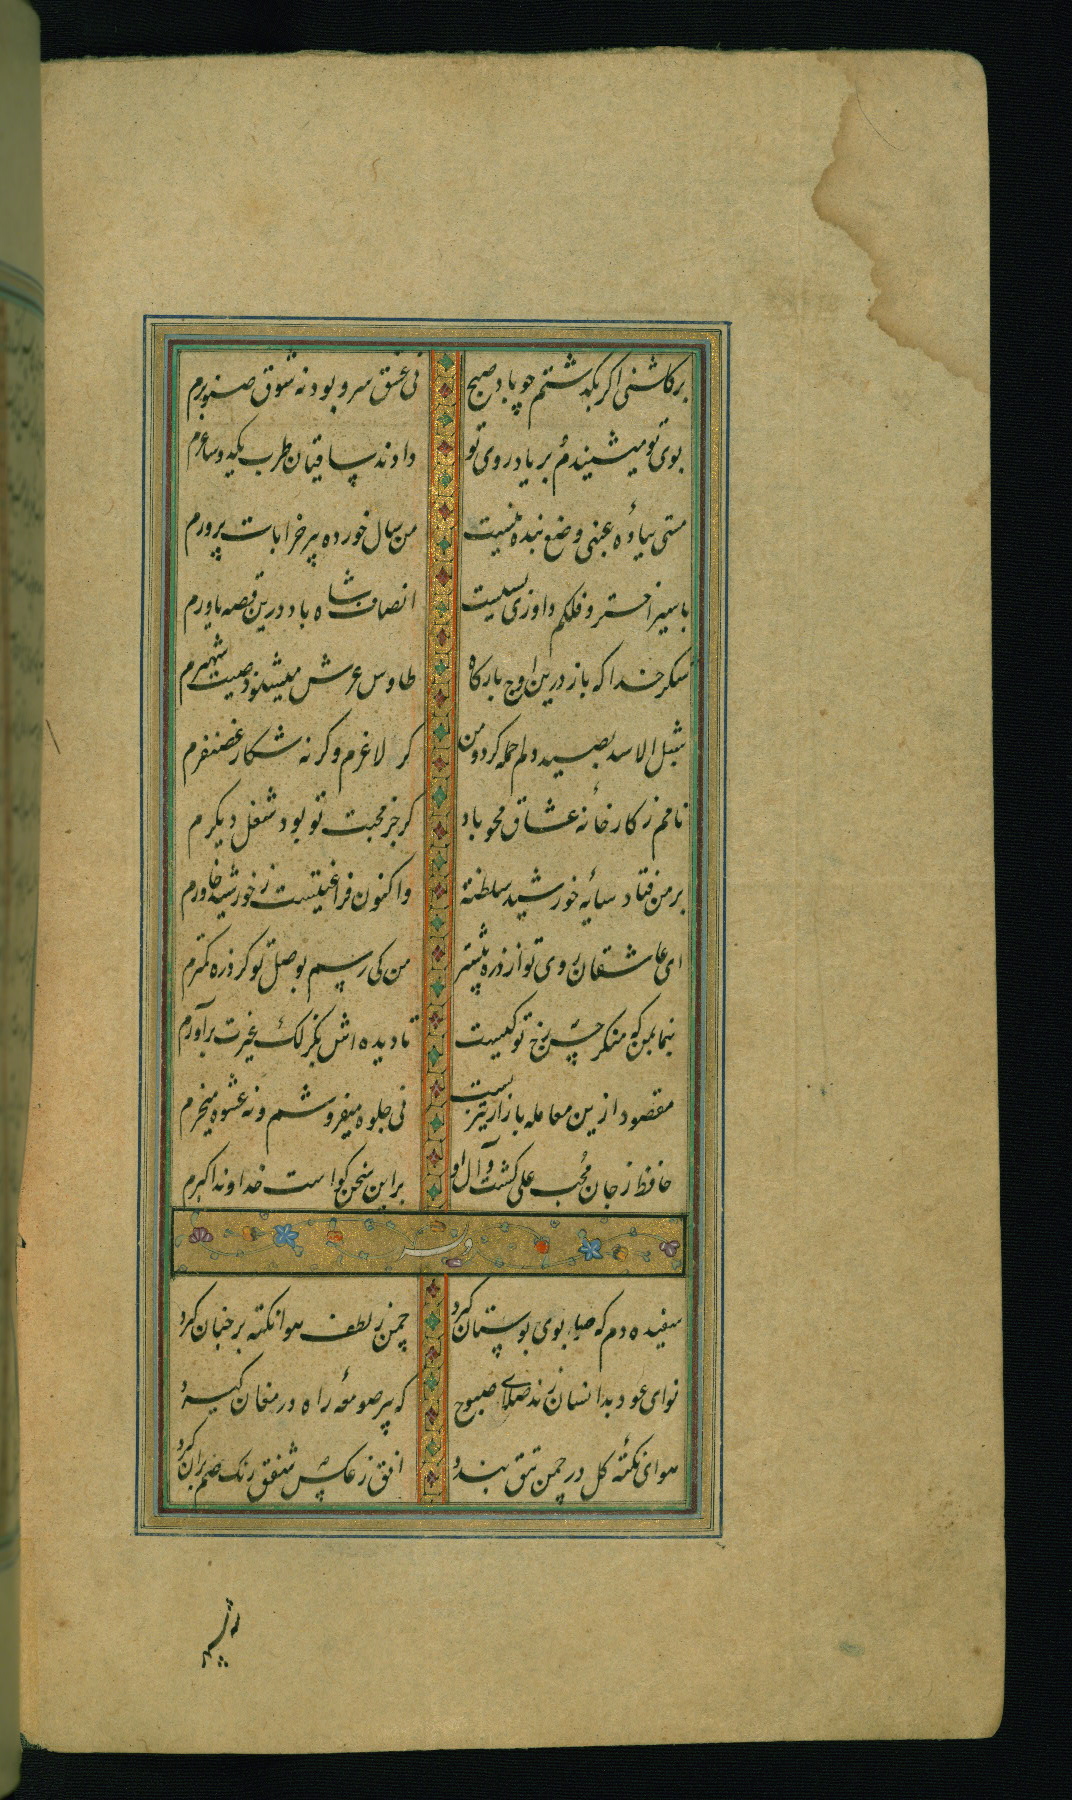 بر گلشنی اگر بگذشتم چو باد صبح نی عشق سرو بود نه شوق صنوبرم
بوی تو میشنیدم و بر یاد روی تو دادند ساقیان طرب یکدو ساغرم
مستی بیاؤه عنبی وضع بنده نیست من سال خورده پیر خرابات پرورم
با سیر اختر و فلکم داوری بسیست انصاف شاه باد درین قصه یاورم
شکر خدا که باز درین اوج بارگاه طاوس عرش میشنود صیت شهپرم
شبل الاسد بصید دلم حمله کرد و من گر لاغرم وگرنه شکار غضنفرم
نامم ز کارخانهٔ عشاق محو باد گر جز محبت تو بود شغل دیگرم
بر من فتاد سایهٔ خورشید سلطنة واکنون فراغتست ز خورشید خاورم
ای عاشقان روی تو از ذره بیشتر من کی رسم بوصل تو کز ذره کمترم
بنما بمن که منکر حسن رخ تو کیست تا دیده اش بگزلک غیرت برآورم
مقصود ازین معامله بازار تیزیست نی جلوه میفروشم و نه عشوه میخرم
حافظ ز جان محب علی گشت و آل او بر این سخن گواست خداوند اکبرم
وله
سفیده دم که صبا بوی بوستان گیرد چمن ز لطف هوا نکته بر جنان گیرد
نوای عود بدانسان زند صلای صبوح که پیر صومعه راه در مغان گیرد
هوای نکتهٔ گل در چمن تتق بندد افق ز عکس شفق رنگ گیرد